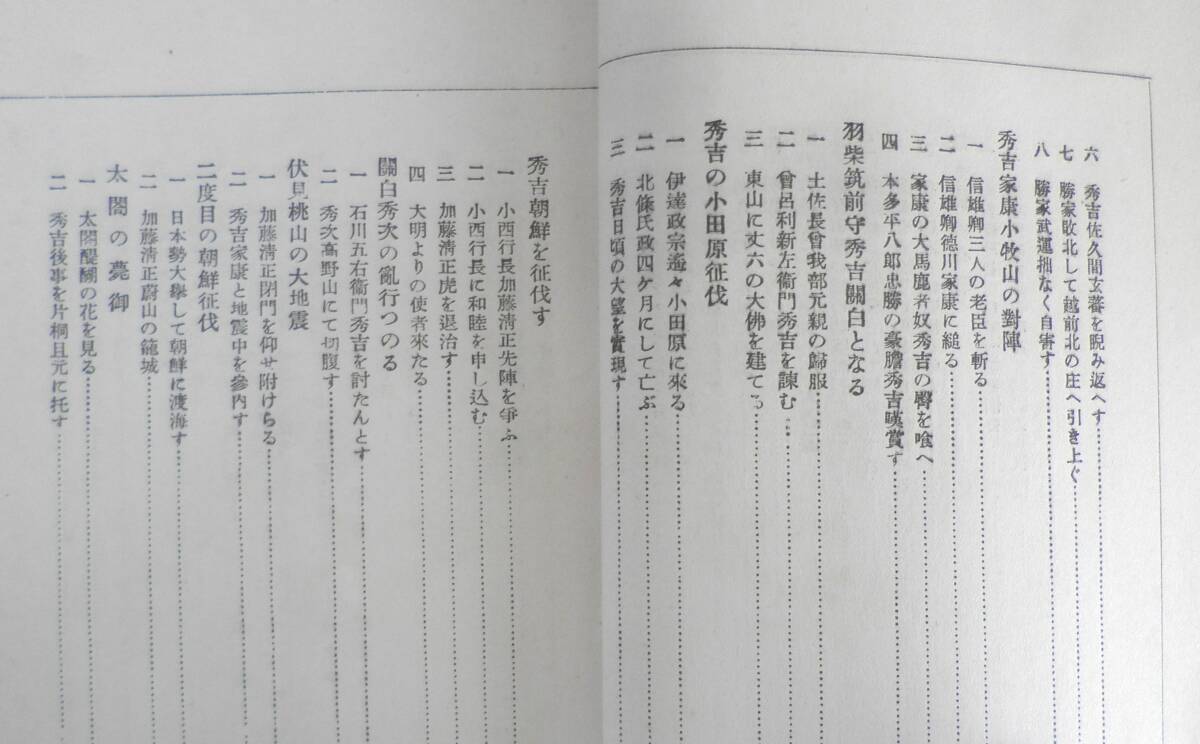 六　秀吉佐久間玄蕃を睨み返へす
七　勝家敗北して越前北の庄へ引き上ぐ
八　勝家武運拙なく自害す
秀吉家康小牧山の對陣
一　信雄卿三人の老臣を斬る
二　信雄卿德川家康に縋る
三　家康の大馬鹿者奴秀吉の臀を喰へ
四　本多平八郎忠勝の豪膽秀吉嘆賞す
羽柴筑前守秀吉關白となる
一　土佐長曾我部元親の歸服
二　曾呂利新左衞門秀吉を諫む
三　東山に丈六の大佛を建てる
秀吉の小田原征伐
一　伊達政宗遙々小田原に來る
二　北條氏政四ケ月にして亡ぶ
三　秀吉日頃の大望を實現す
秀吉朝鮮を征伐す
一　小西行長加藤淸正先陣を爭ふ
二　小西行長に和睦を申し込む
三　加藤淸正虎を退治す
四　大明よりの使者來たる
關白秀次の亂行つのる
一　石川五右衞門秀吉を討たんとす
二　秀次高野山にて切腹す
伏見桃山の大地震
一　加藤淸正閉門を仰せ附けらる
二　秀吉家康と地震中を參內す
二度目の朝鮮征伐
一　日本勢大擧して朝鮮に渡海す
二　加藤淸正蔚山の籠城
太閤の薨御
一　太閤醍醐の花を見る
二　秀吉後事を片桐且元に托す